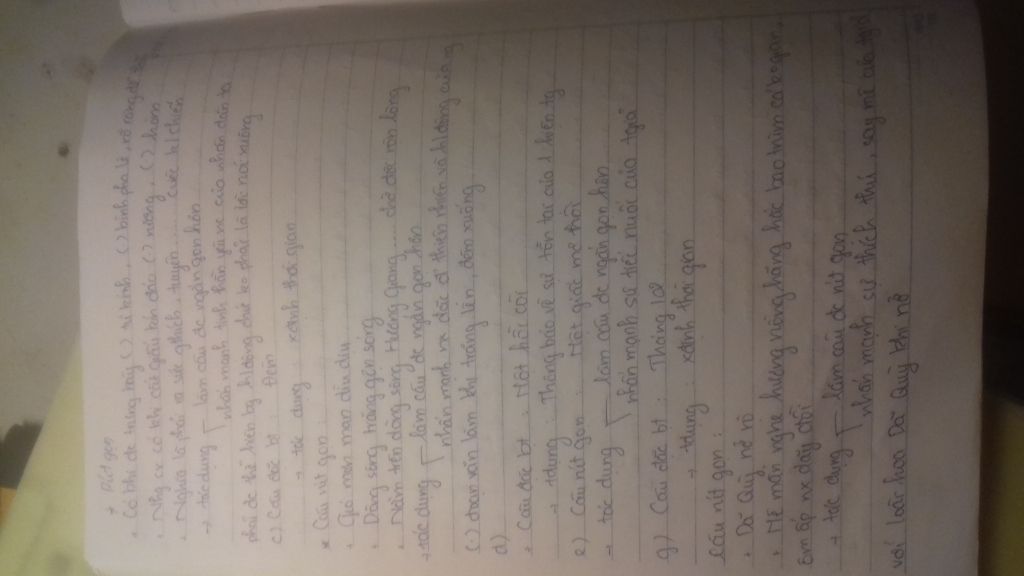 * Rút gọn
+ Có khi đc trưng bày () tủ kính, () bình pha lê, rõ ràng dễ thấy
+ Nhg cx có khi cất giấu kín đáo () rương, () hòm
+ Nghĩa là phải ra sức gthích, tuyên ... cuộc k/chiến
→ tác dụng làm câu đc ngắn gọn hơn
nhấn mạnh tinh thần yêu nc của nhân dân ta
phải đc thể hiện bg hành động chứ ko phải là lời nói suông
c) Câu đặc bt : Đêm
→ tác dụng : xđịnh thời gian
* Câu rút gọn :
+ Gió mơn man dìu dịu
+ Dòng sông trăng gợn sóng
+ Nằm trên dòng sông Hương Giang ... chờ đợi rộn lòng
→ tác dụng làm câu đc ngắn gọn hơn
nhấn mạnh ... đặc ... thiên nhiên và h/động của ng
() đoạn văn làm khi trăng lên, đêm xuống
d)
+ Câu đặc bt : Một hồi còi
→ tdụng : Thông báo về sự tồn tại của 1 hiện tg
e) Câu rút gọn : Một giấc mơ thôi
→ tác dụng làm câu đc ngắn gọn hơn
nhấn mạnh sự tiếc nuối của tgiả
g) Câu đặc bt : Tháng 10
→ tdụng : xđịnh thời gian
Câu rút gọn :
+ Dã Quỳ nở rộ
+ Mê mẩn nghe hương vàng hăng hắc bao trùm cả k.gian,
ấm áp nx đấy chời
→ tác dụng làm câu đc rút gọn
nhấn mạnh sự thích thú, say mê của tgiả
với loài hoa Dã Quỳ khi nở